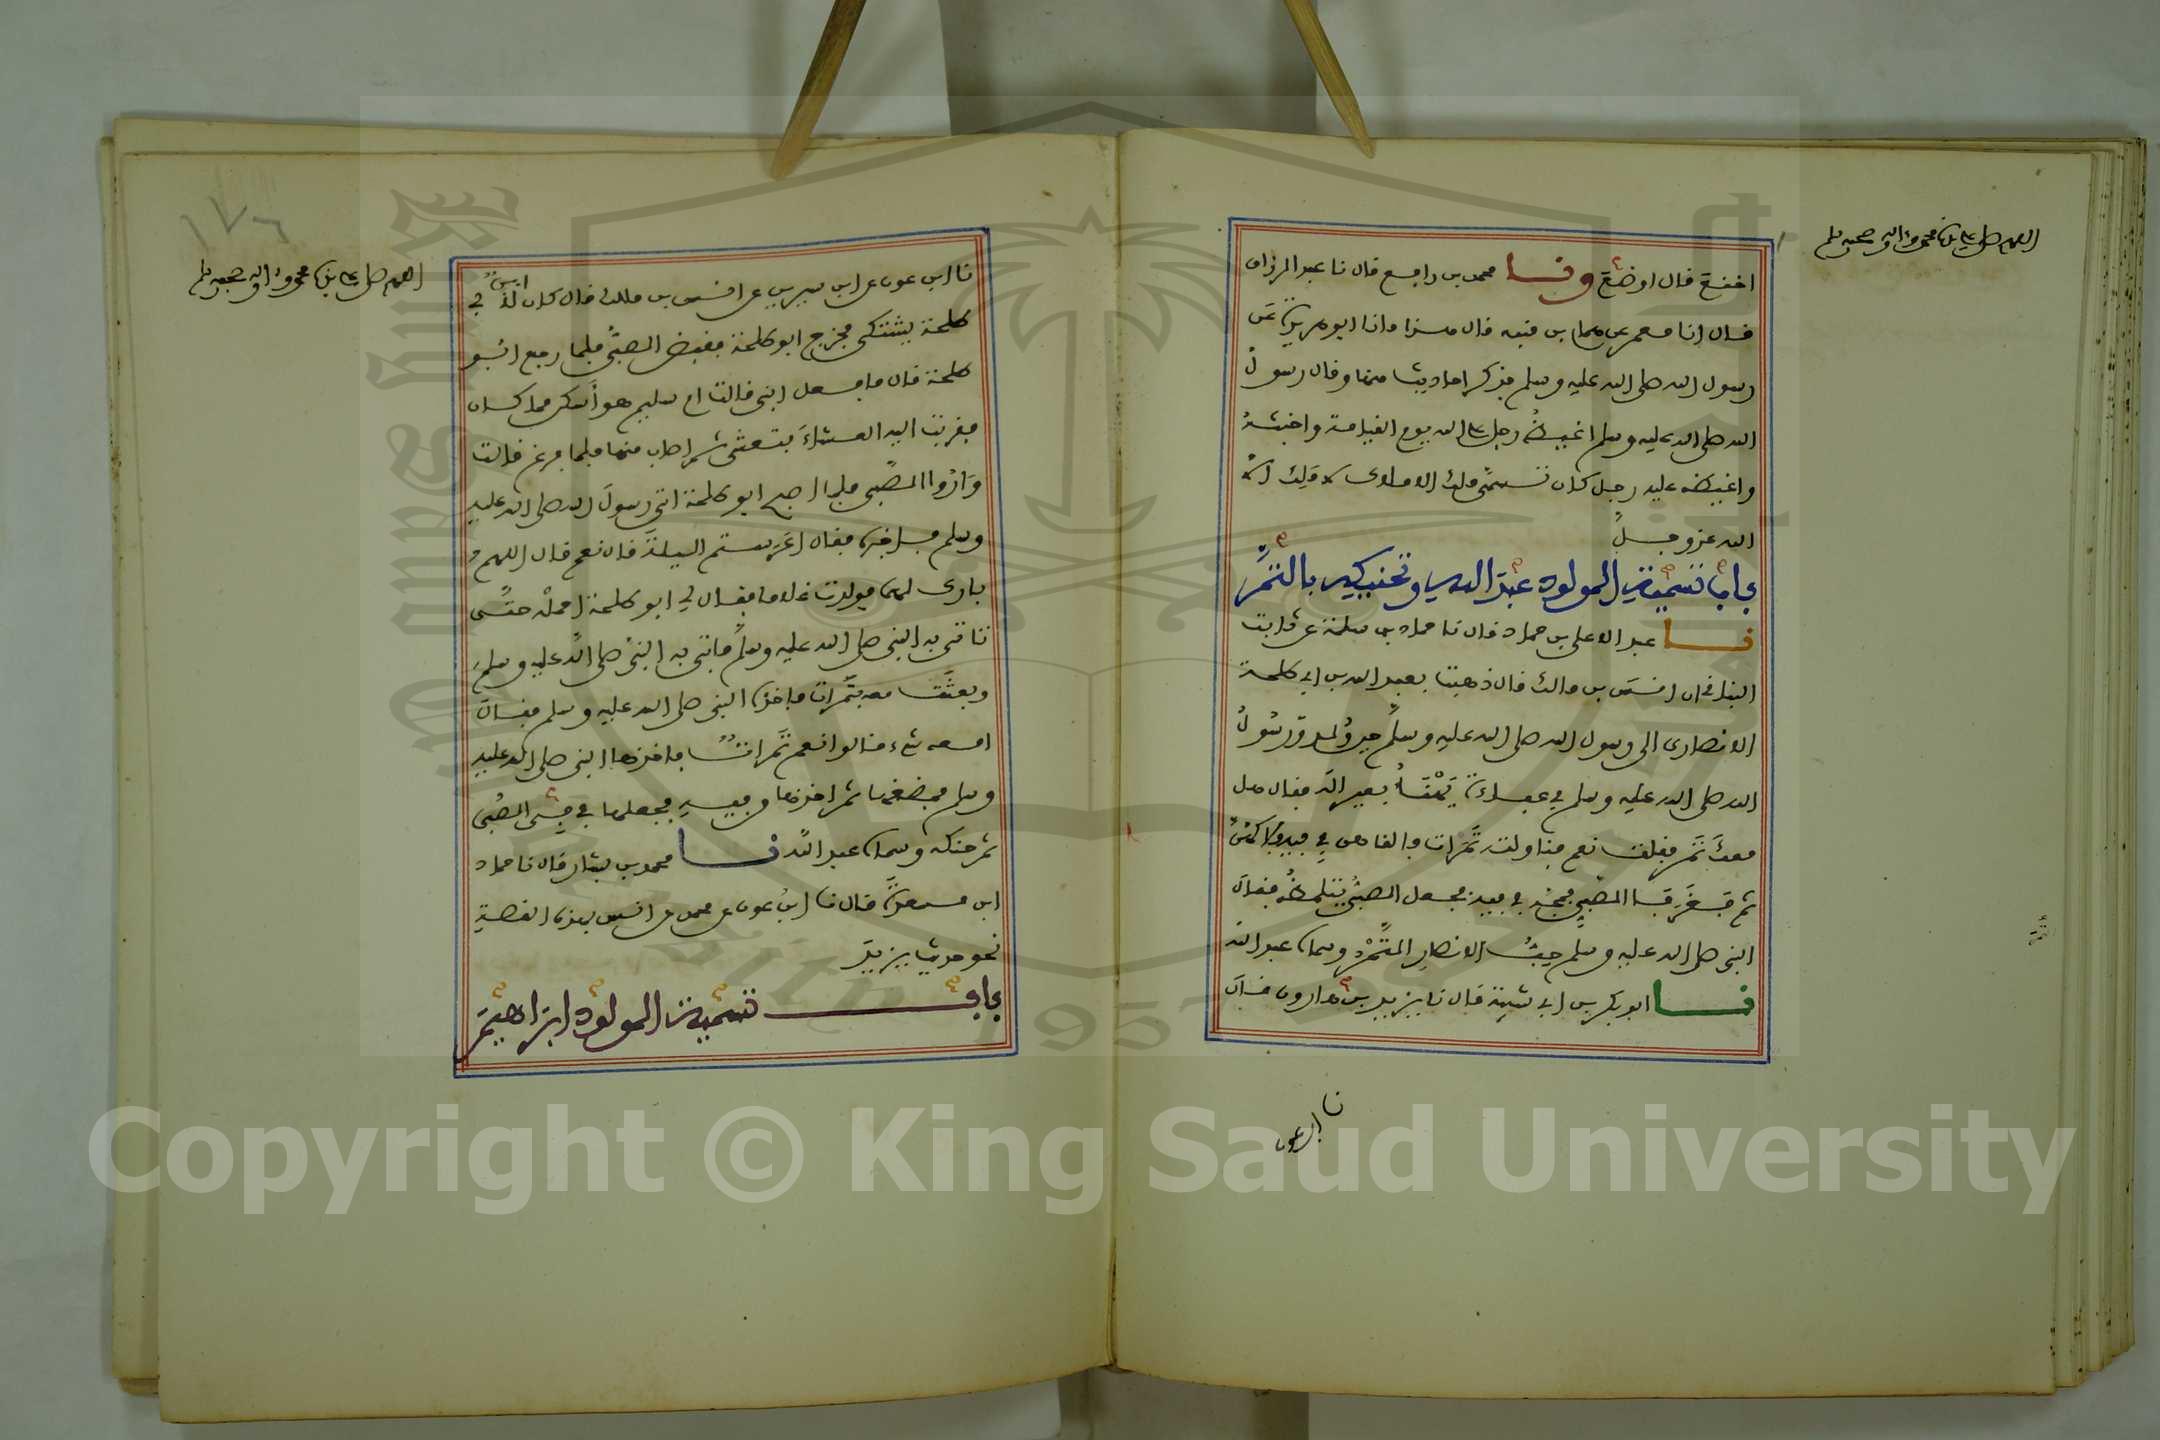 اللهم صل على سيدنا محمد واله وصحبه وسلم
اخنع قال اوضع ونا محمد بن رافع قال نا عبد الرزاق
قال انا معمر عن همام بن منبه قال هذا ما نا ابو هريرة عن
رسول الله صلى الله عليه وسلم فذكر احاديث منها وقال رسول
الله صلى الله عليه وسلم اغيظ رجل على الله يوم القيامة واخبثه
واغيظه عليه رجل كان تسمى ملك الاملاك لا ملك الا
الله عز وجل
باب تسمية المولود عبد الله وتحنيكه بالتمر
نا عبد الاعلى بن حماد قال نا حماد بن سلمة عن ثابت
البناني ان انس بن مالك قال ذهبت بعبد الله بن ابي طلحة
الانصاري الى رسول الله صلى الله عليه وسلم حين ولد ورسول
الله صلى الله عليه وسلم في عباءة يهنأ بعيرا له فقال هل
معك تمر فقلت نعم فناولته تمرات فالقاهن في فيه فلاكهن
ثم فغر فا الصبي فمجه في فيه فجعل الصبي يتلمظه فقال
النبي صلى الله عليه وسلم حب الانصار التمر وسماه عبد الله
نا ابو بكر بن ابي شيبة قال نا يزيد بن هارون قال
نا ابن عون
١٧٦
اللهم صل على سيدنا محمد واله وصحبه وسلم
نا ابن عون عن ابن سيرين عن انس بن مالك قال كان ابن لابي
طلحة يشتكي فخرج ابو طلحة فقبض الصبي فلما رجع ابو
طلحة قال ما فعل ابني قالت ام سليم هو أسكن مما كان
فقربت اليه العشاء فتعشى ثم اصاب منها فلما فرغ قالت
واروا الصبي فلما اصبح ابو طلحة اتى رسول الله صلى الله عليه
وسلم فاخبره فقال اعرستم الليلة قال نعم قال اللهم
بارك لهما فولدت غلاما فقال لي ابو طلحة احمله حتى
تاتي به النبي صلى الله عليه وسلم فاتى به النبي صلى الله عليه وسلم
وبعثت معه بتمرات فاخذه النبي صلى الله عليه وسلم فقال
امعه شيء قالوا نعم تمرات فاخذها النبي صلى الله عليه
وسلم فمضغها ثم اخذها من فيه فجعلها في في الصبي
ثم حنكه وسماه عبد الله نا محمد بن بشار قال نا حماد
ابن مسعدة قال نا ابن عون عن محمد عن انس بهذه القصة
نحو حديث يزيد
باب تسمية المولود ابراهيم
Copyright © King Saud University
1957